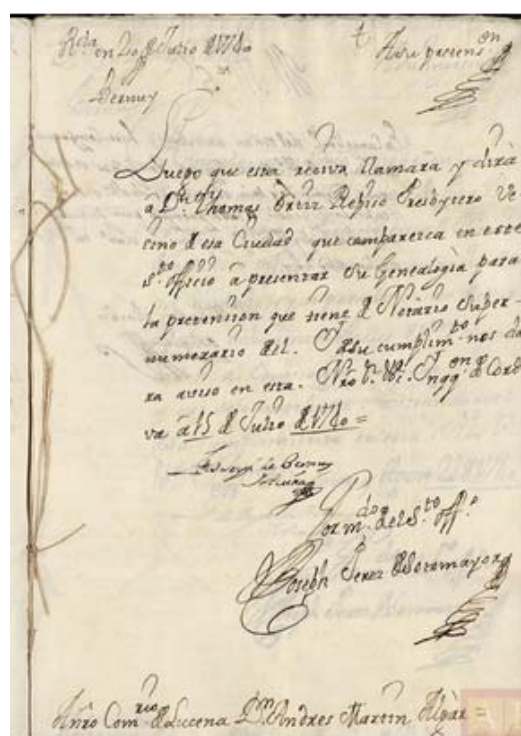 Rda. en 20 de Julio de 1740 t
Bernuy
Luego que esta reciva llamara y dirá
â Dn. Thomas Ortiz Repiso Presbytero Ve
cino de esa Ciudad que comparezca en este
sto. offizio â presentar su Genealogia para
la pretension que tiene de Notario super-
numerario del. I de su cumplimto. nos da
ra aviso en esta. Inqqon. de Cordo
va â 15 de Julio de 1740 =
de Bernuy
Por mdo. del Sto. Offo.
Joseph Perez de Sotomayor
Anro Comrio. de Lucena Dn. Andres Martin Algar =